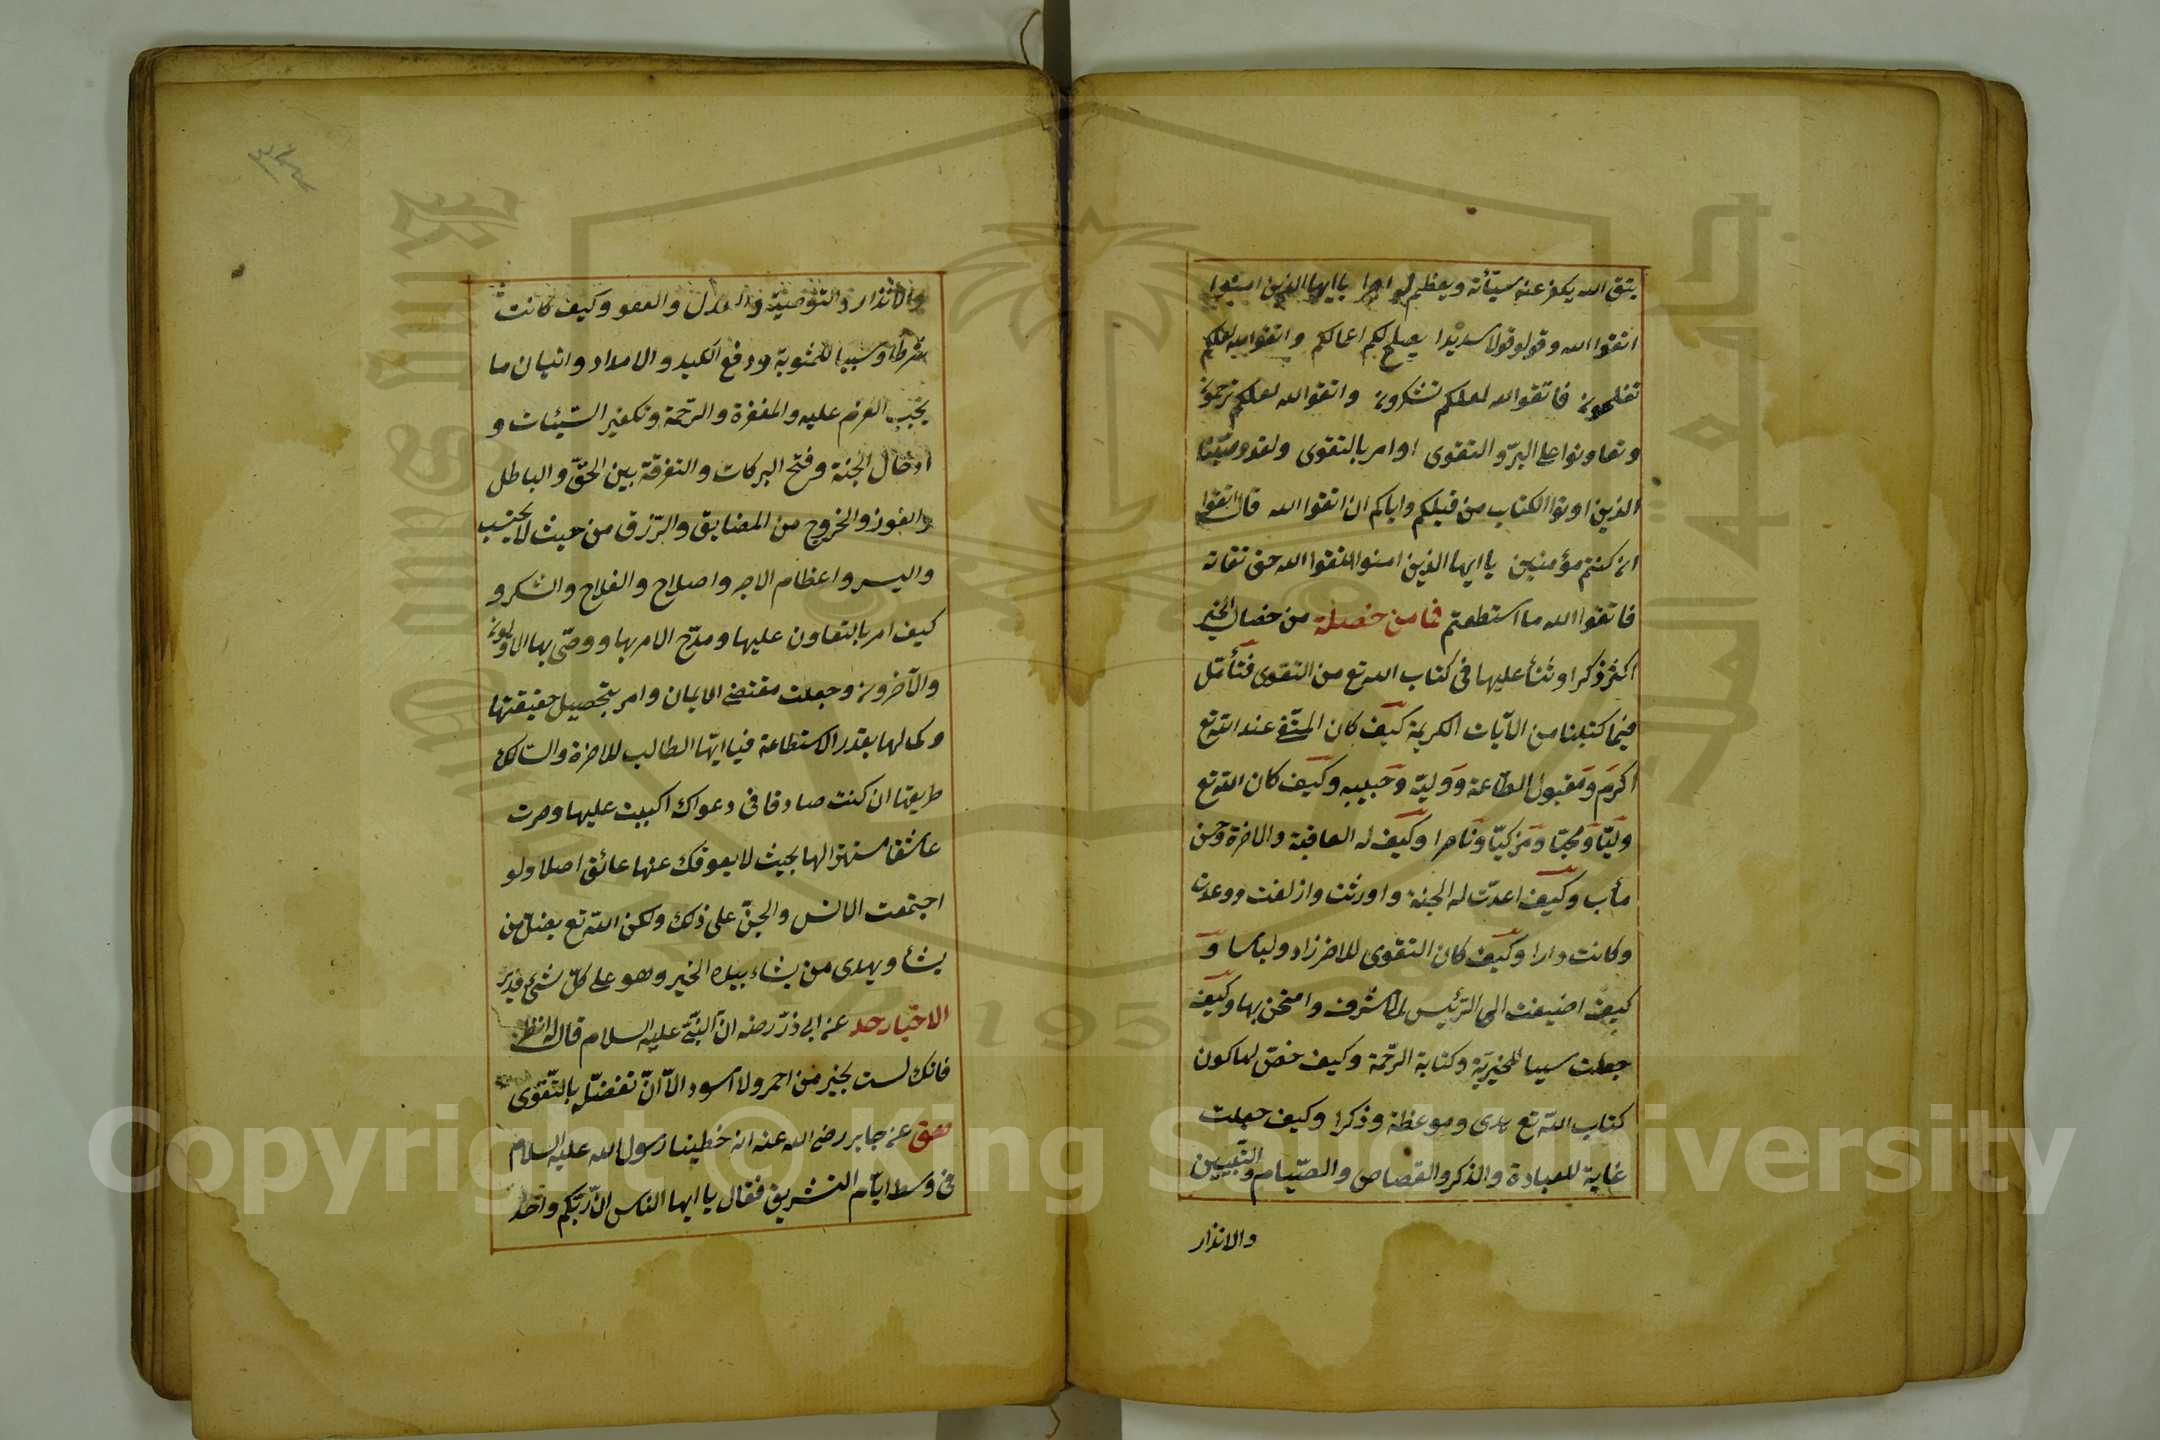 يتق الله يكفر عنه سيآته ويعظم له اجرا يا ايها الذين امنوا
اتقوا الله وقولوا قولا سديدا يصلح لكم اعمالكم واتقوا الله لعلكم
تفلحون فاتقوا الله لعلكم تشكرون واتقوا الله لعلكم ترحمون
وتعاونوا على البرّ والتقوى او امر بالتقوى ولقد وصّينا
الذين اوتوا الكتاب من قبلكم واياكم ان اتقوا الله قال اتقوا
ان كنتم مؤمنين يا ايها الذين امنوا اتقوا الله حق تقاته
فاتقوا الله ما استطعتم فما من خصلة من خصال الخير
اكثر ذكرا وثناء عليها فى كتاب الله تع من التقوى فتأمّل
فيما كتبنا من الآيات الكريمة كيف كان المتّقى عند الله تع
اكرم ومقبول الطاعة ووليّه وحبيبه وكيف كان الله تع
وليّا ومحبّا ومزكيّا وناصرا وكيف له العاقبة والاخرة وحسن
مأب وكيف اعدّت له الجنة واورثت وازلفت ووعدت
وكانت دارا وكيف كان التقوى للاخر زاد ولباسا و
كيف اضيفت الى الرئيس الاشرف وامتحن بها وكيف
جعلت سببا للخيريّة وكتابة الرحمة وكيف خصّ لها كون
كتاب الله تع هدى وموعظة وذكرا وكيف جعلت
غاية للعبادة والذكر والقصاص والصّيام والتبيين
والانذار
والانذار والتوصية والعدل والعفو وكيف كانت
شرطا وسببا للمثوبة ودفع الكيد والامداد واتيان ما
يجب العزم عليه والمغفرة والرّحمة وتكفير السّيئات و
ادخال الجنة وفتح البركات والتفرقة بين الحقّ والباطل
والفوز والخروج من المضايق والرّزق من حيث لا يحتسب
واليسر واعظام الاجر واصلاح والفلاح والشكر و
كيف امر بالتعاون عليها ومدح الامر بها ووصّى بها الاولون
والآخرون وجعلت مقتضى الايمان وامر بتحصيل حقيقتها
وكمالها بقدر الاستطاعة فيا ايّها الطالب للاخرة والسّالك
طريقها ان كنت صادقا فى دعواك اكببت عليها وصرت
عاشقا مستهترا لها بحيث لا يعوقك عنها عائق اصلا ولو
اجتمعت الانس والجنّ على ذلك ولكن الله تع يضلّ من
يشاء ويهدى من يشاء بيده الخير وهو على كلّ شئ قدير
الاخبار حد عن ابى ذرّ رضه انّ النبّى عليه السلام قال له انظر
فانك لست بخير من احمر ولا اسود الاّ انّ تفضّله بالتّقوى
هق عن جابر رضى الله عنه انه خطبنا رسول الله عليه السلام
فى وسط ايّام التشريق فقال يا ايها الناس انّ ربّكم واحد
Copyright © King Saud University
1957